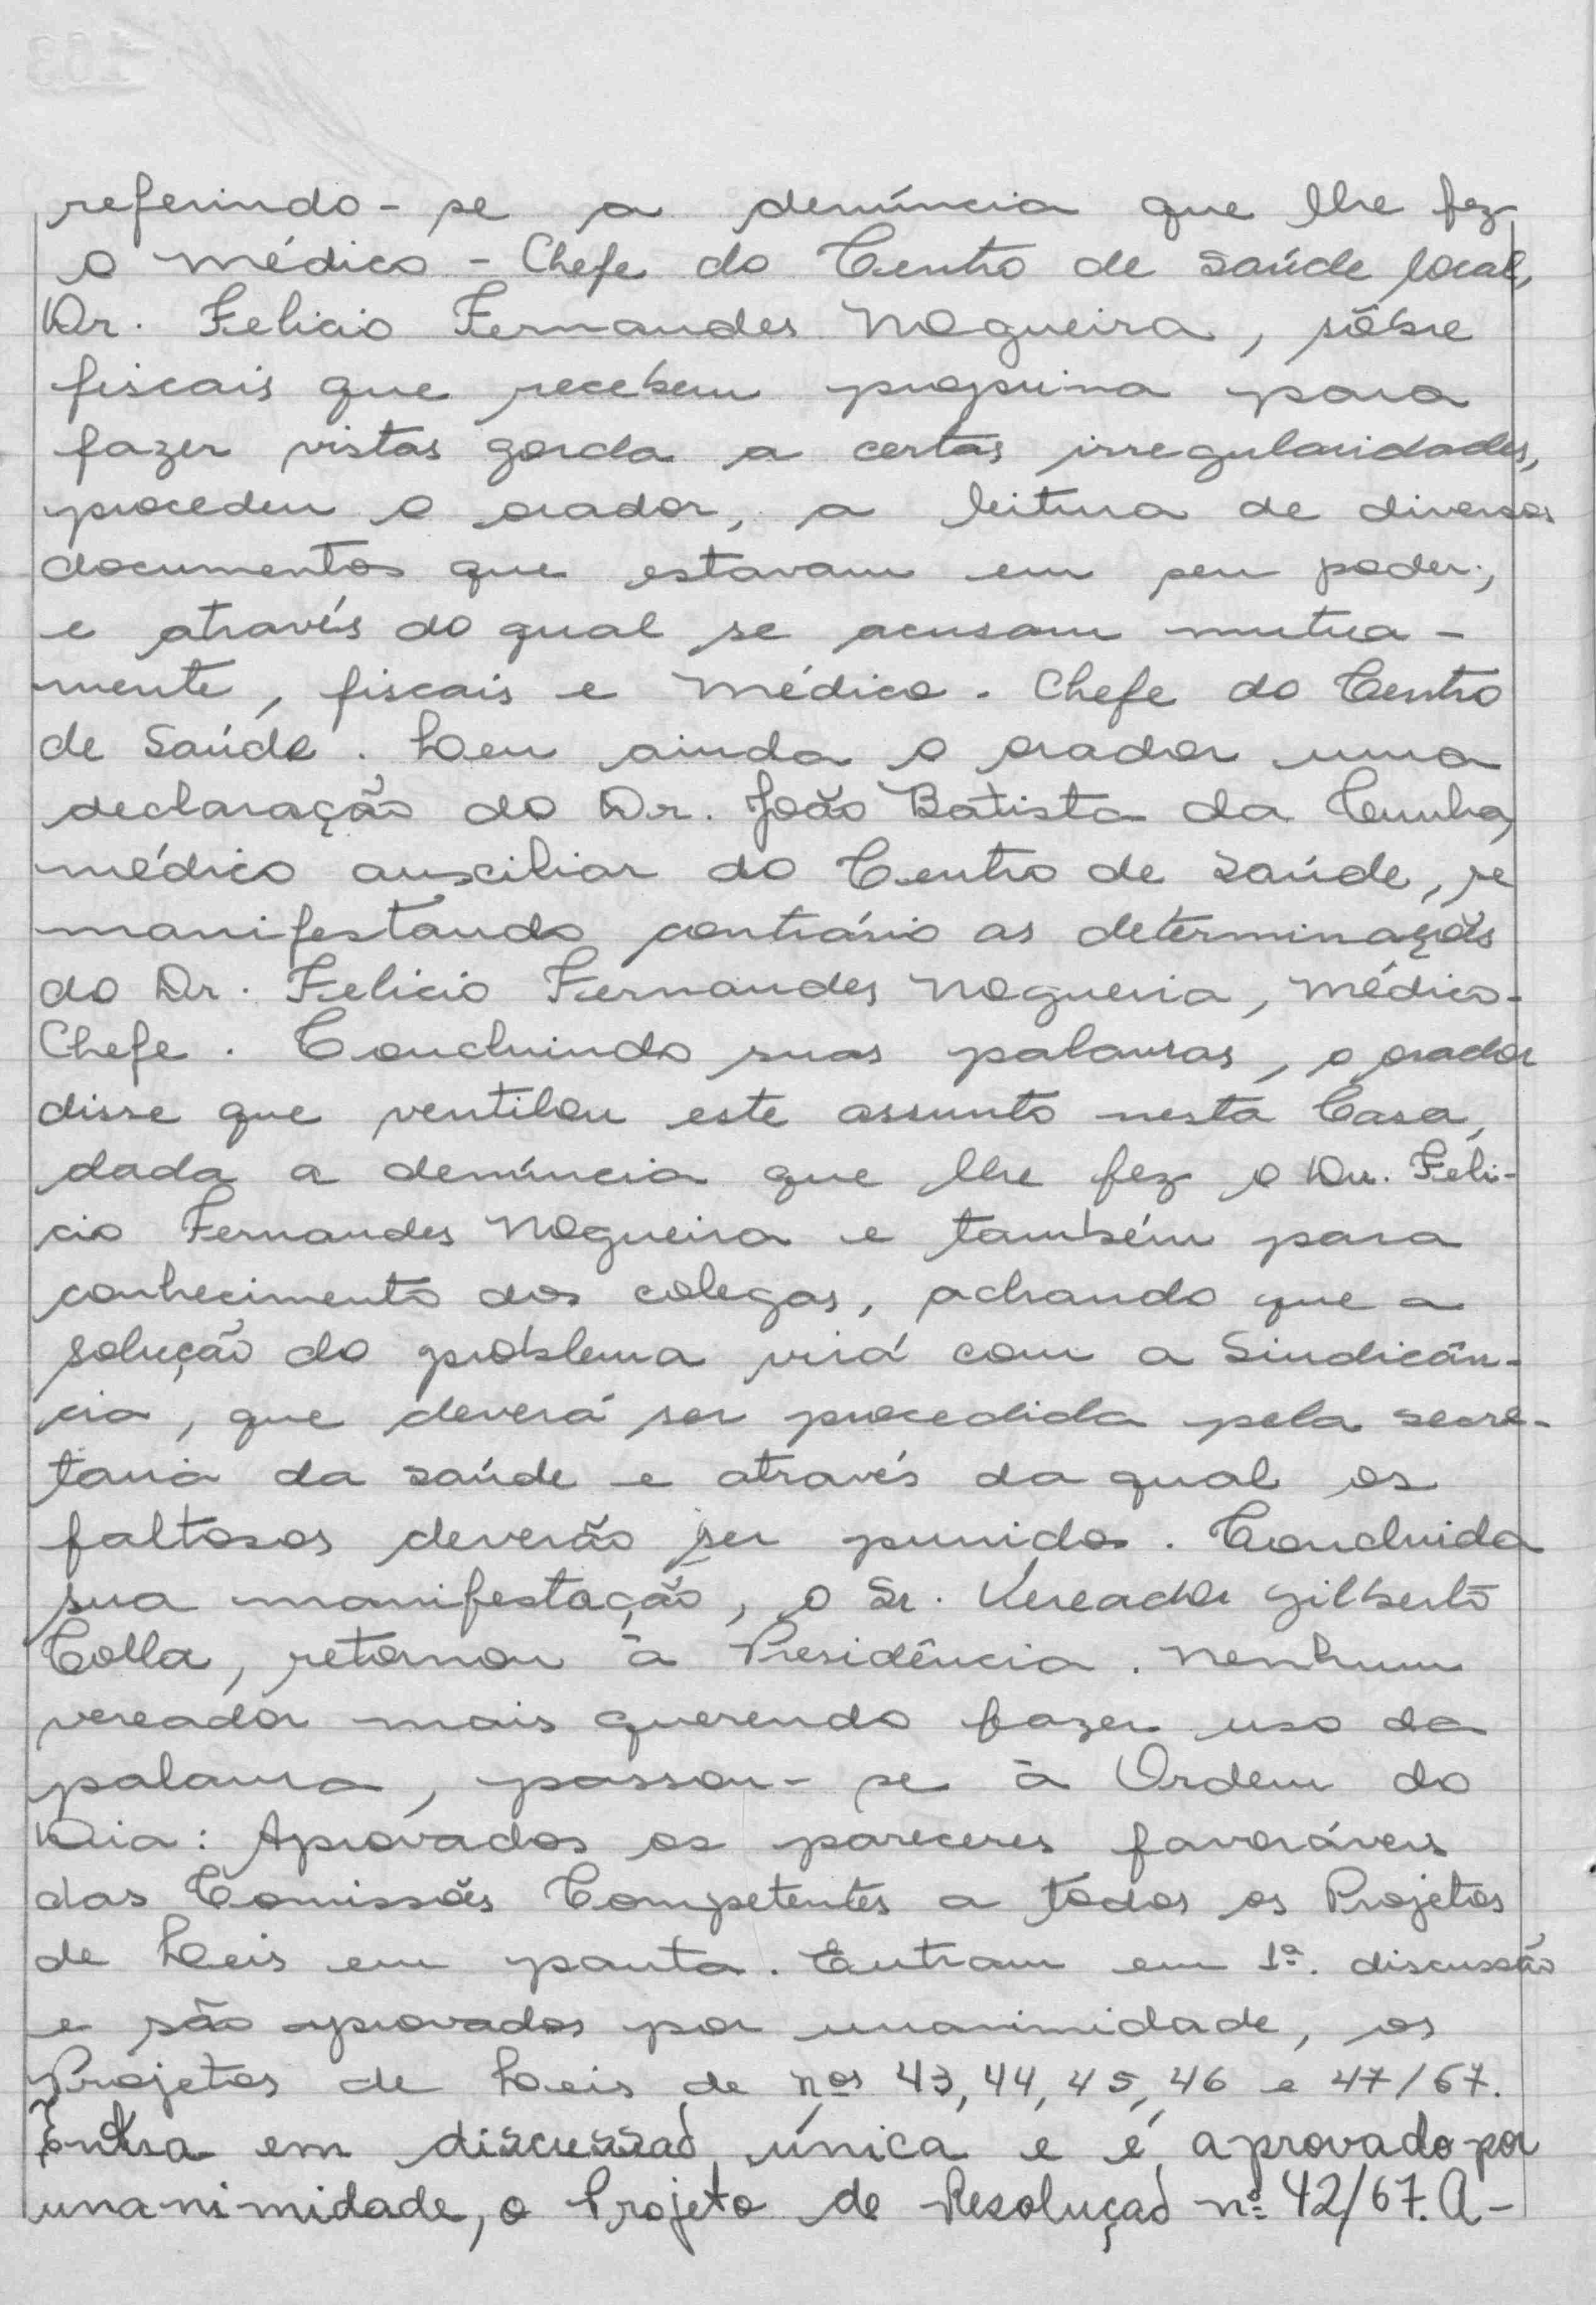 referindo-se a denúncia que lhe fez
o médico-Chefe do Centro de Saúde local,
Dr. Felicio Fernandes Nogueira, sôbre
fiscais que recebem propina para
fazer vistas gorda a certas irregularidades,
procedeu o orador, a leitura de diversos
documentos que estavam em seu poder,
e através do qual se acusam mutua-
mente, fiscais e Médico-Chefe do Centro
de Saúde. Leu ainda o orador uma
declaração do Dr. João Batista da Cunha,
médico auxiliar do Centro de Saúde, se
manifestando contrário as determinações
do Dr. Felicio Fernandes Nogueira, Médico-
Chefe. Concluindo suas palavras, o orador
disse que ventilou este assunto nesta Casa,
dada a denúncia que lhe fez o Dr. Feli-
cio Fernandes Nogueira e também para
conhecimento dos colegas, achando que a
solução do problema virá com a Sindicân-
cia, que deverá ser procedida pela secre-
taria da saúde e através da qual os
faltosos deverão ser punidos. Concluida
sua manifestação, o Sr. Vereador Gilberto
Colla, retornou à Presidência. Nenhum
vereador mais querendo fazer uso da
palavra, passou-se à Ordem do
Dia: Aprovados os pareceres favoráveis
das Comissões Competentes a todos os Projetos
de Leis em pauta. Entram em 1ª. discussão
e são aprovados por unanimidade, os
Projetos de Leis de nºs 43, 44, 45, 46 e 47/67.
Entra em discussão única e é aprovado por
unanimidade, o Projeto de Resolução nº 42/67. A-